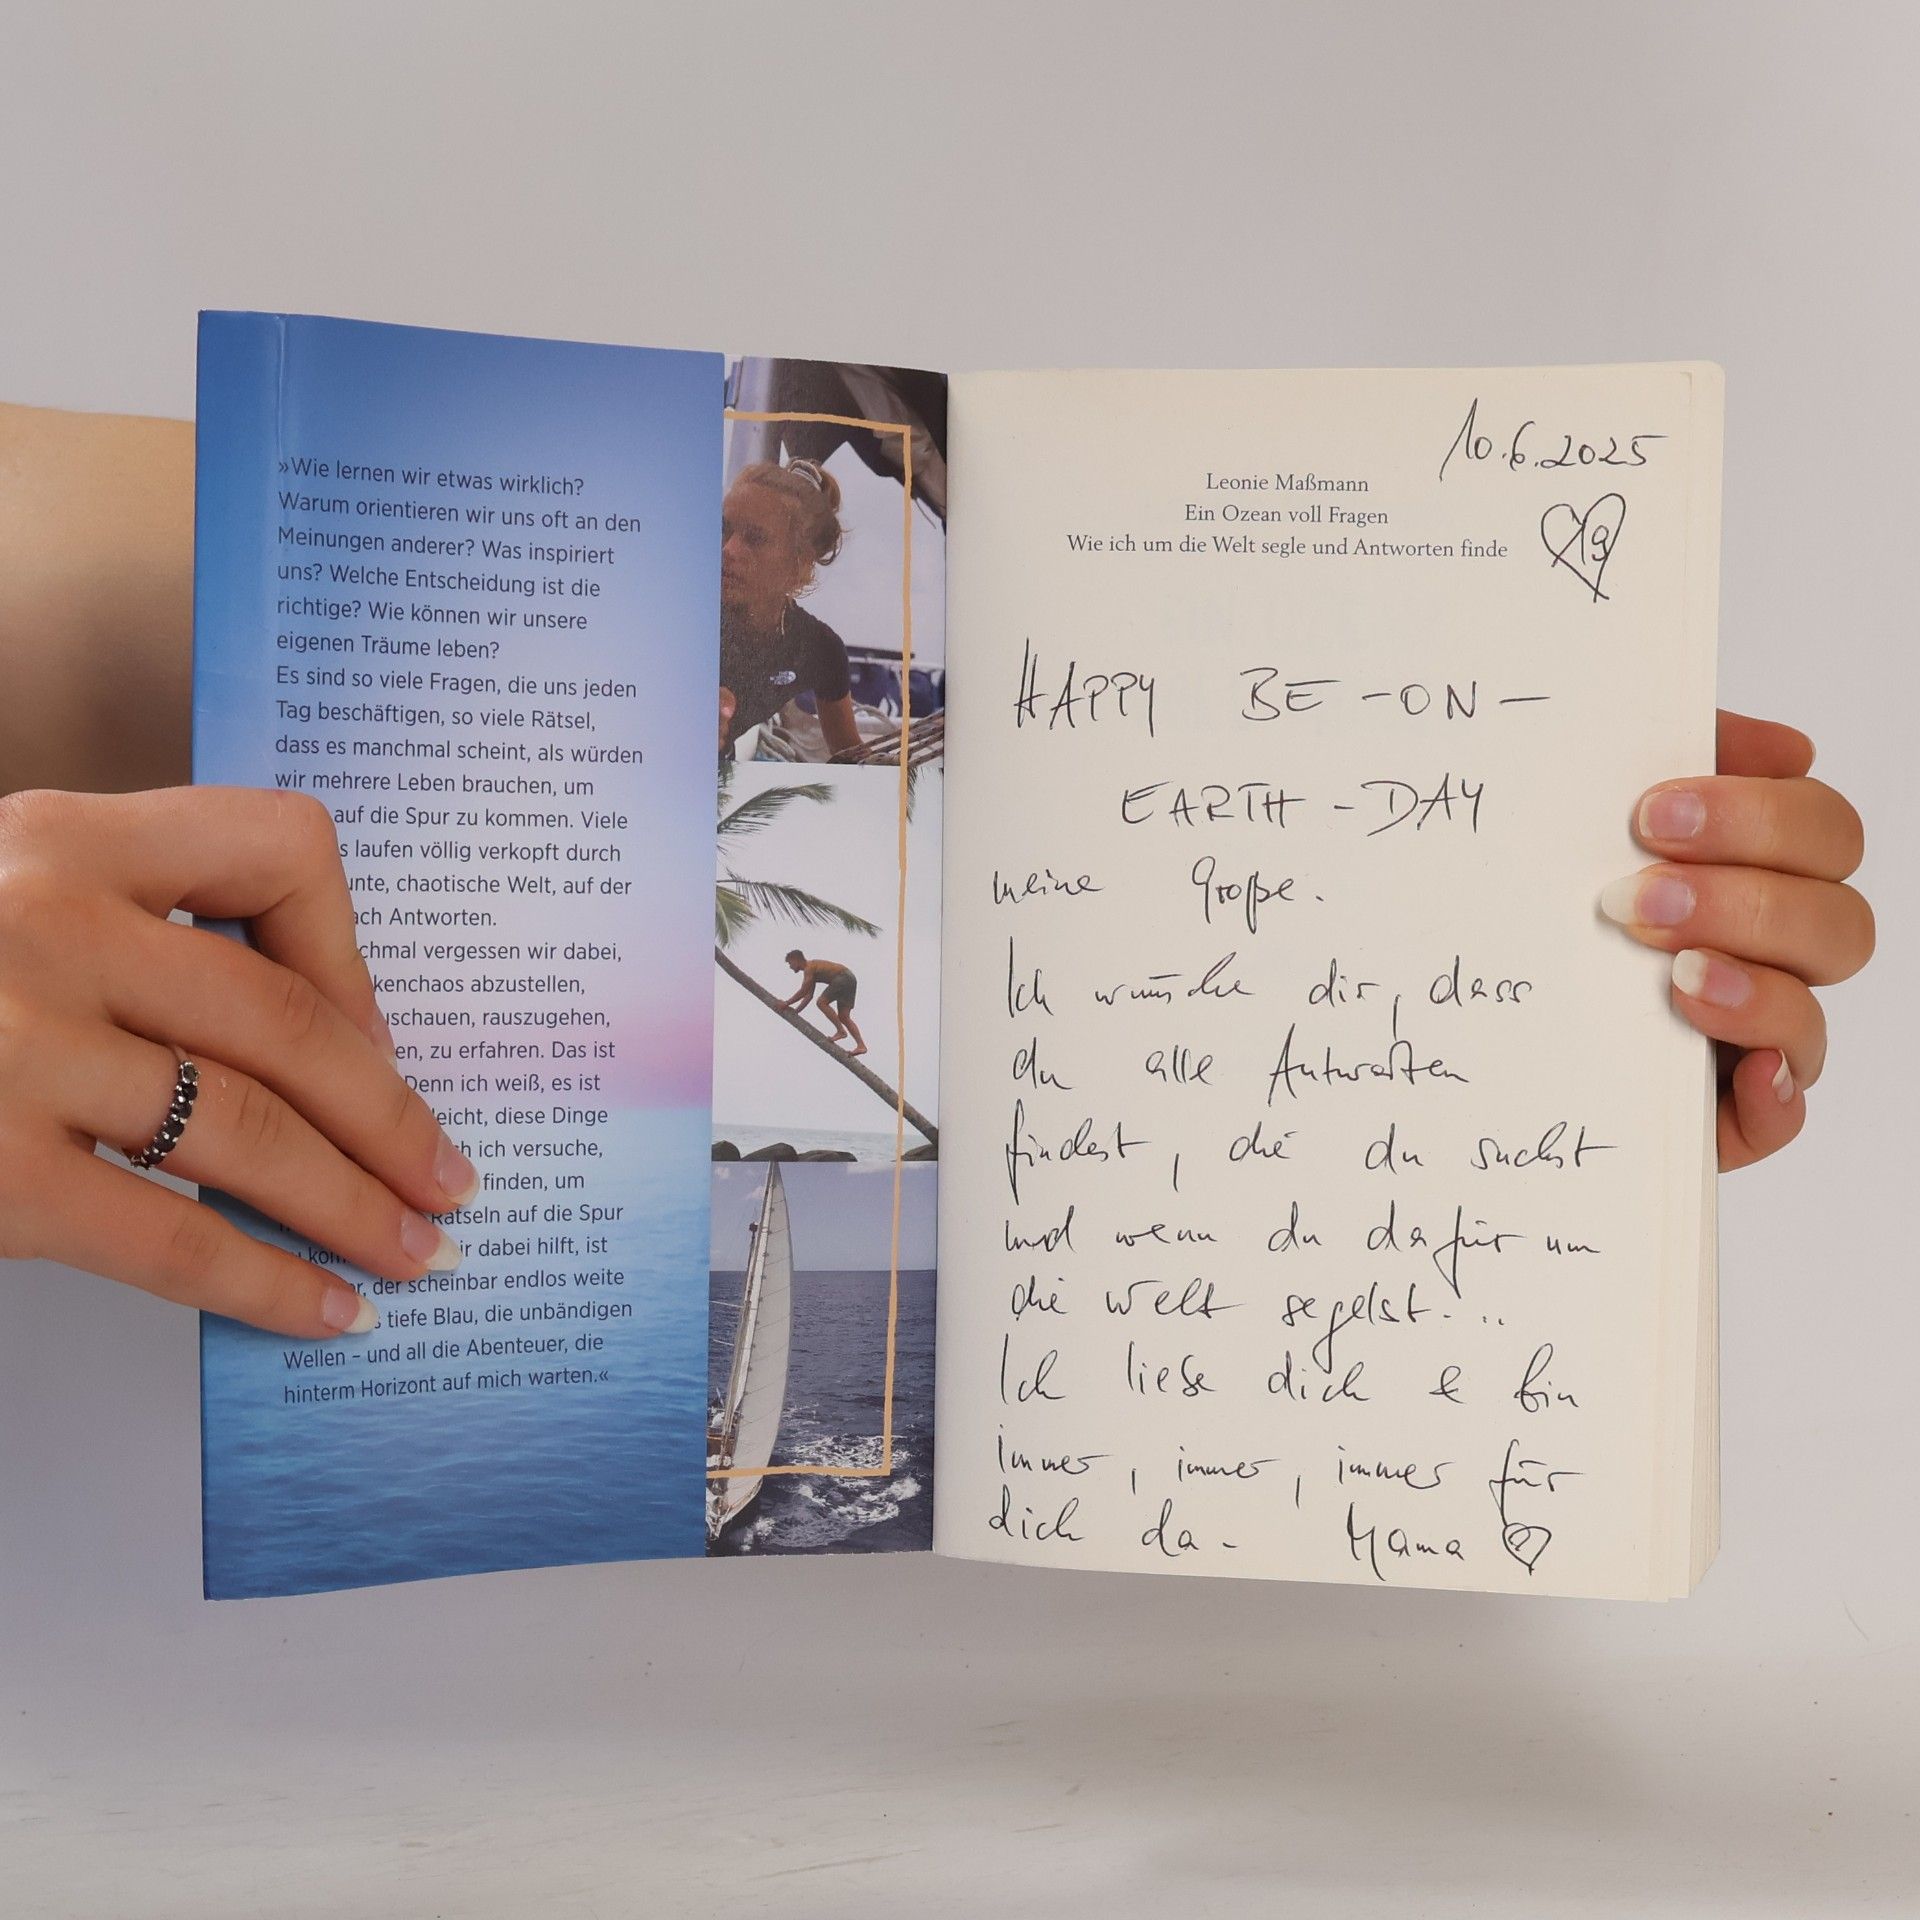 »Wie lernen wir etwas wirklich?
Warum orientieren wir uns oft an den
Meinungen anderer? Was inspiriert
uns? Welche Entscheidung ist die
richtige? Wie können wir unsere
eigenen Träume leben?
Es sind so viele Fragen, die uns jeden
Tag beschäftigen, so viele Rätsel,
dass es manchmal scheint, als würden
wir mehrere Leben brauchen, um
auf die Spur zu kommen. Viele
laufen völlig verkopft durch
chaotische Welt, auf der
Antworten.
vergessen wir dabei,
abzustellen,
rauszugehen,
zu erfahren. Das ist
Denn ich weiß, es ist
diese Dinge
ich versuche,
finden, um
Rätseln auf die Spur
dabei hilft, ist
der scheinbar endlos weite
tiefe Blau, die unbändigen
Wellen – und all die Abenteuer, die
hinterm Horizont auf mich warten.«
THE NORTH FACE
10.6.2025
Leonie Maßmann
Ein Ozean voll Fragen
Wie ich um die Welt segle und Antworten finde
19
HAPPY BE-ON-
EARTH-DAY
meine Große.
Ich wünsche dir, dass
du alle Antworten
findest, die du suchst
und wenn du dafür um
die Welt segelst...
Ich liebe dich & bin
immer, immer, immer für
dich da. Mama ♡